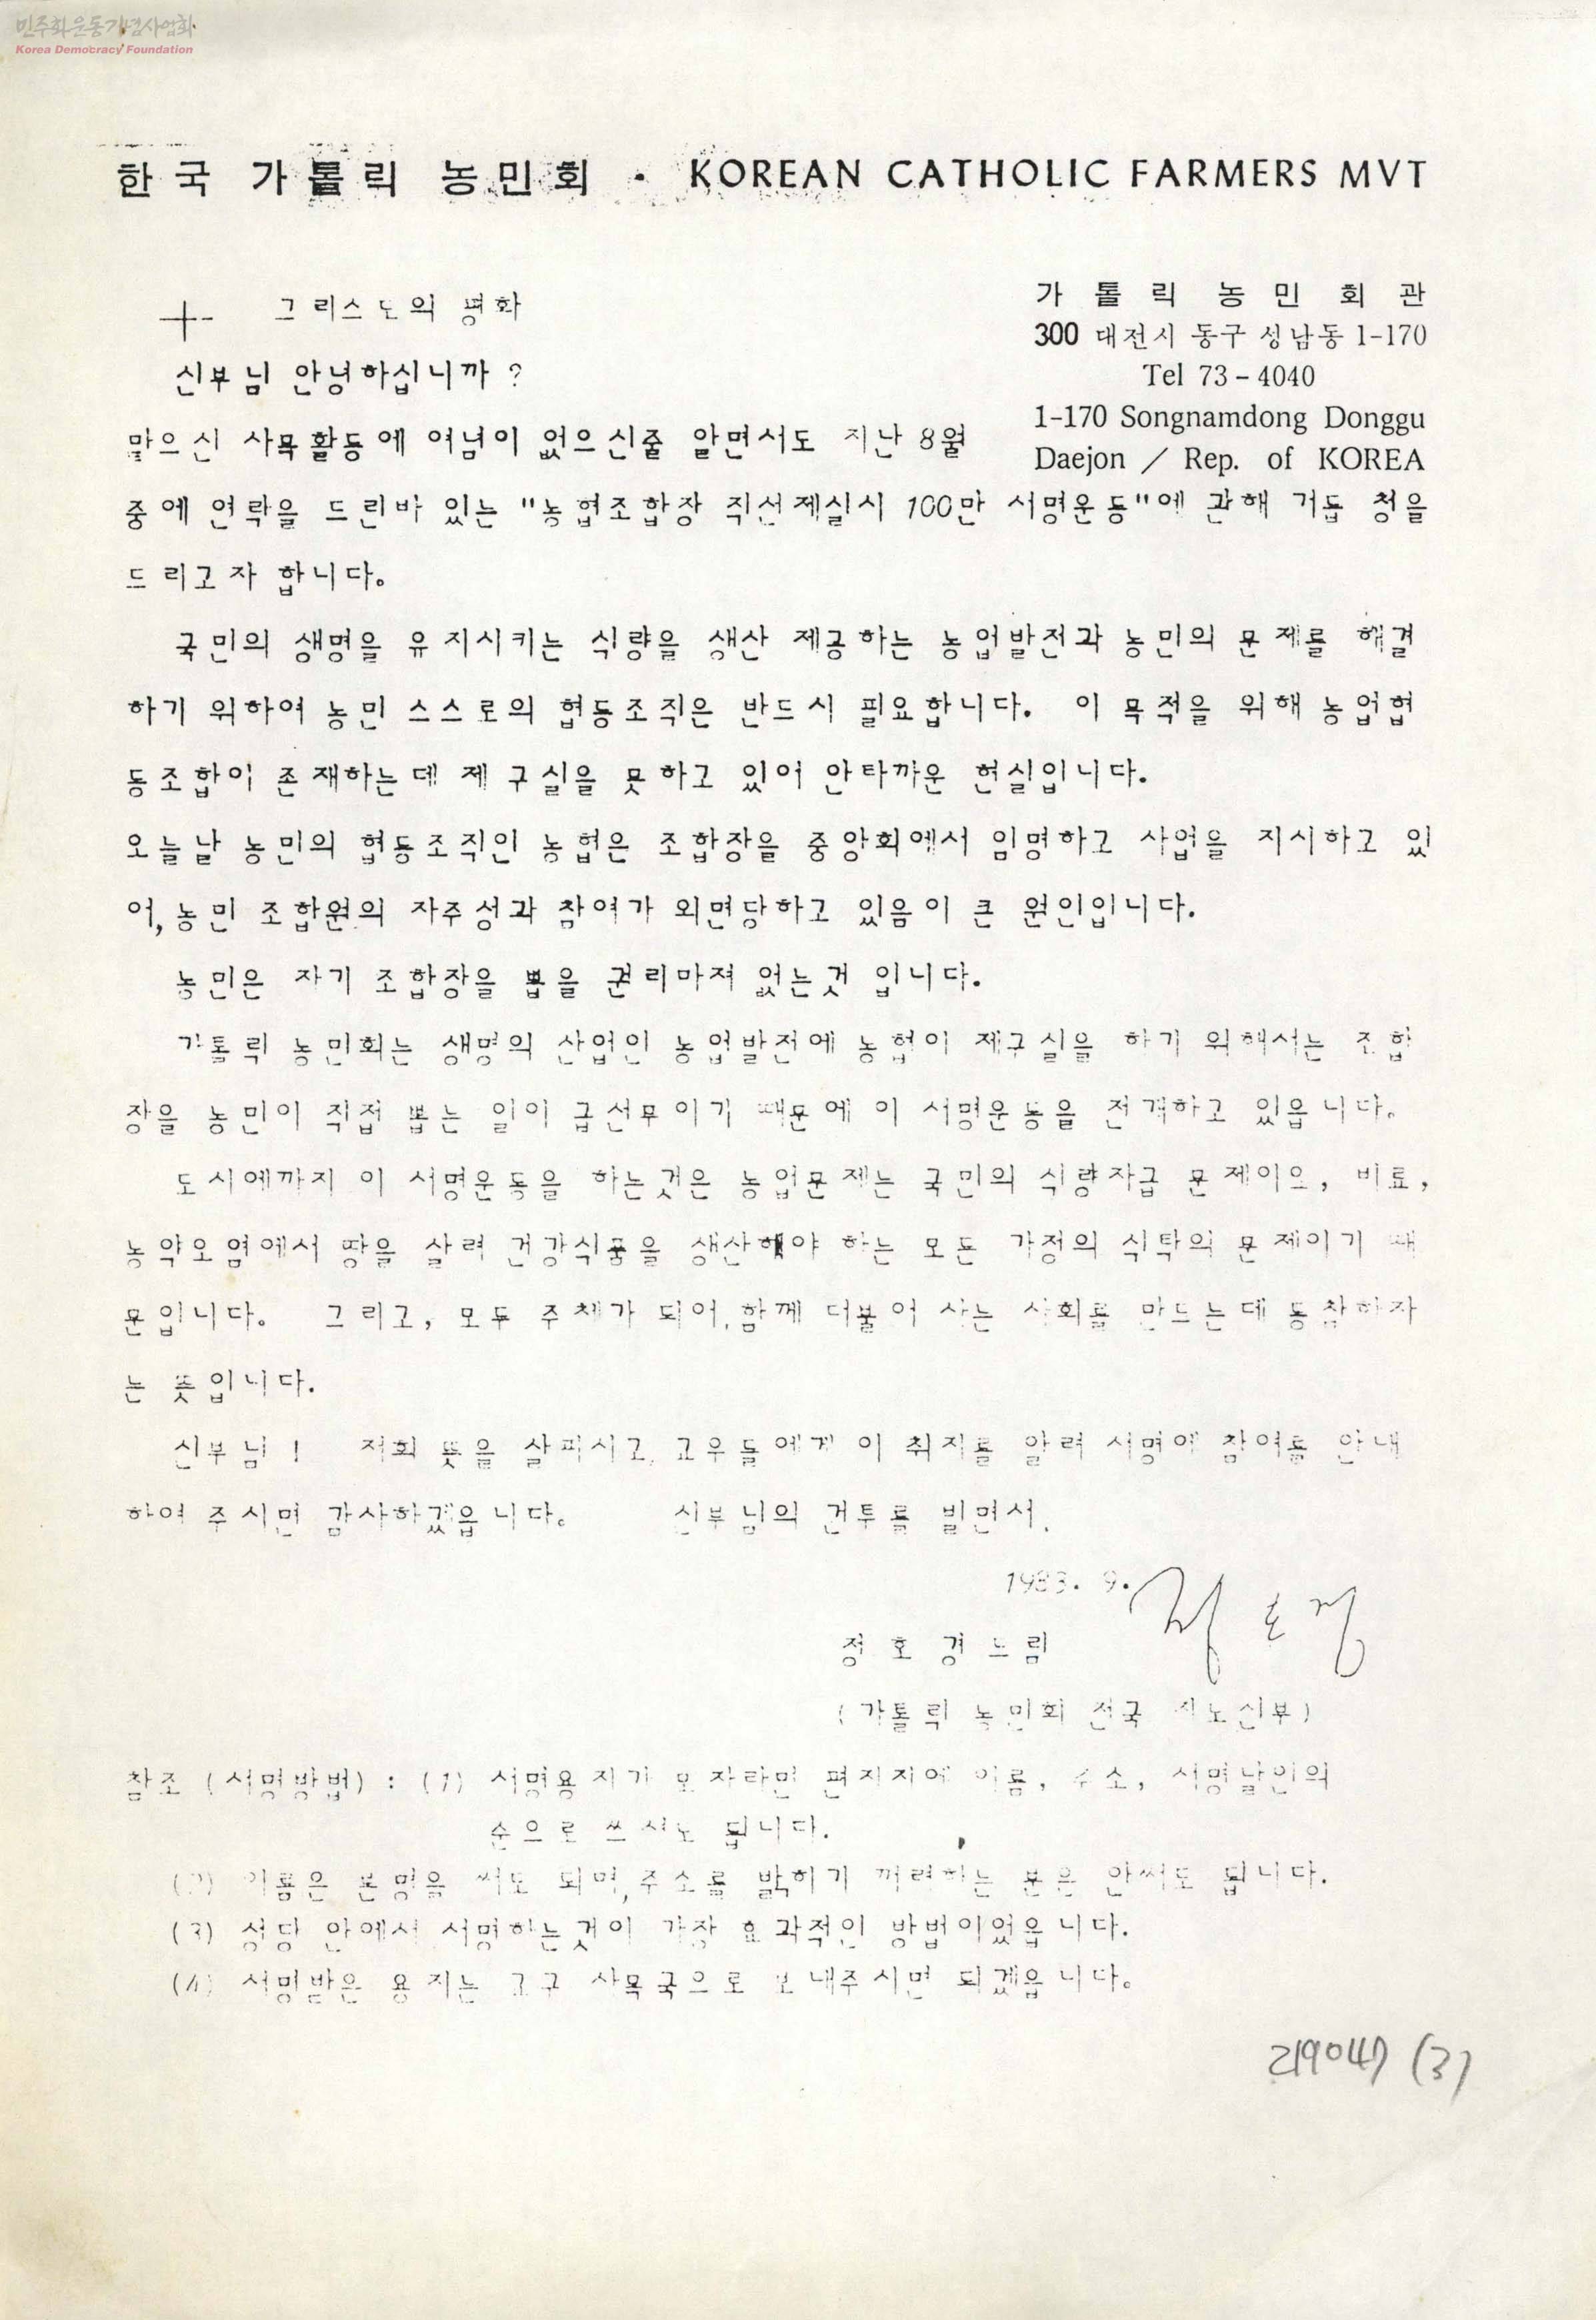 민주화운동기념사업회
Korea Democracy Foundation
한국 가톨릭 농민회 · KOREAN CATHOLIC FARMERS MVT
가톨릭 농민회관
300 대전시 동구 성남동 1-170
Tel 73-4040
1-170 Songnamdong Donggu
Daejon / Rep. of KOREA
그리스도의 평화
신부님 안녕하십니까?
맡으신 사목활동에 여념이 없으신줄 알면서도 지난 8월
중에 연락을 드린바 있는 "농협조합장 직선제실시 100만 서명운동"에 관해 거듭 청을
드리고자 합니다.
국민의 생명을 유지시키는 식량을 생산 제공하는 농업발전과 농민의 문제를 해결
하기 위하여 농민 스스로의 협동조직은 반드시 필요합니다. 이 목적을 위해 농업협
동조합이 존재하는데 제 구실을 못하고 있어 안타까운 현실입니다.
오늘날 농민의 협동조직인 농협은 조합장을 중앙회에서 임명하고 사업을 지시하고 있
어, 농민 조합원의 자주성과 참여가 외면당하고 있음이 큰 원인입니다.
농민은 자기 조합장을 뽑을 권리마져 없는것 입니다.
가톨릭 농민회는 생명의 산업인 농업발전에 농협이 제구실을 하기 위해서는 조합
장을 농민이 직접 뽑는 일이 급선무이기 때문에 이 서명운동을 전개하고 있읍니다.
도시에까지 이 서명운동을 하는것은 농업문제는 국민의 식량자급 문제이오, 비료,
농약오염에서 땅을 살려 건강식품을 생산해야 하는 모든 가정의 식탁의 문제이기 때
문입니다. 그리고, 모두 주체가 되어, 함께 더불어 사는 사회를 만드는데 동참하자
는 뜻입니다.
신부님! 저희 뜻을 살피시고, 교우들에게 이 취지를 알려 서명에 참여를 안내
하여 주시면 감사하겠읍니다. 신부님의 건투를 빌면서.
1983. 9.
정호경
정호경 드림
(가톨릭 농민회 전국 지도신부)
참조 (서명방법) : (1) 서명용지가 모자라면 편지지에 이름, 주소, 서명날인의
순으로 쓰셔도 됩니다.
(2) 이름은 본명을 써도 되며, 주소를 밝히기 꺼려하는 분은 안써도 됩니다.
(3) 성당 안에서 서명하는것이 가장 효과적인 방법이었읍니다.
(4) 서명받은 용지는 교구 사목국으로 보내주시면 되겠읍니다.
(3)